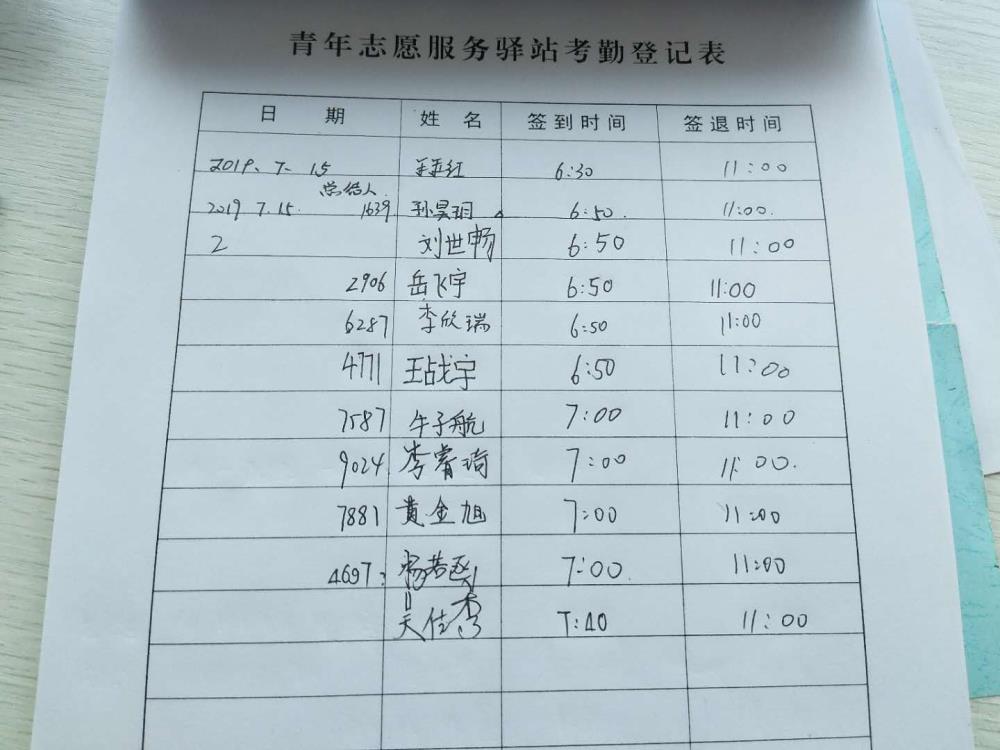 青年志愿服务驿站考勤登记表
日 期 姓 名 签到时间 签退时间
2019、7、15 6:30 11:00
总结人
2019 7.15. 1639 孙昊玥 6:50. 11:00.
2 刘世畅 6:50 11:00
2906 岳飞宇 6:50 11:00
6287 李欣瑞 6:50 11:00
4771 王占宇 6:50 11:00
7587 牛子航 7:00 11:00
9024 李睿琦 7:00 11:00.
7881 黄金旭 7:00 11:00
4697 杨若 7:00. 11:00
吴佳秀 7:40 11:00